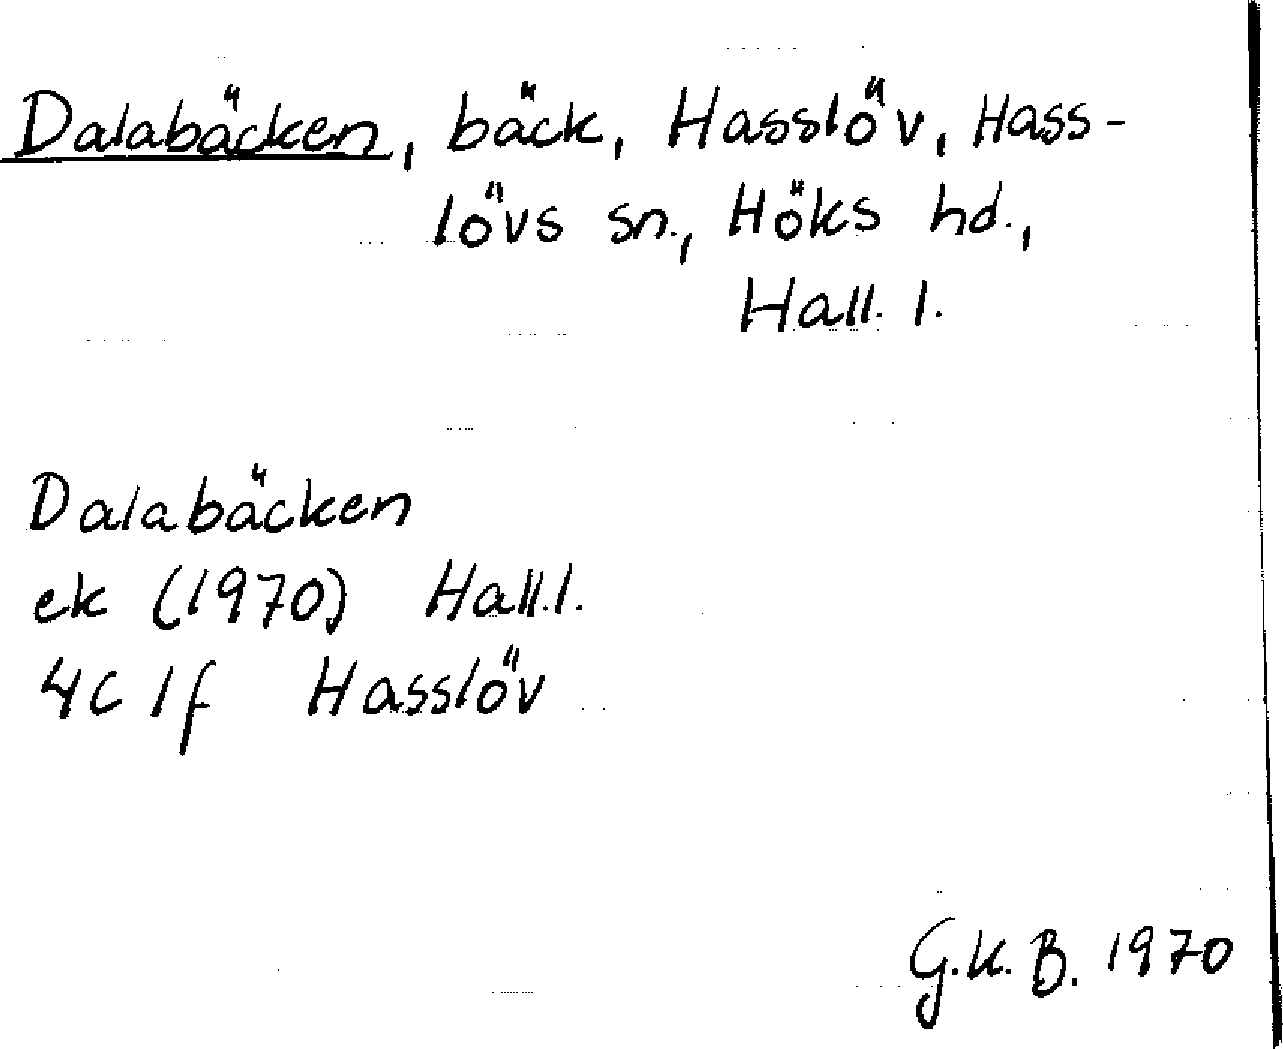 Dalabäcken, bäck, Hasslöv, Hass-
lövs sn., Höks hd.,
Hall. l.
Dalabäcken
ek (1970) Hall.l.
4C 1f Hasslöv
G.K.B. 1970